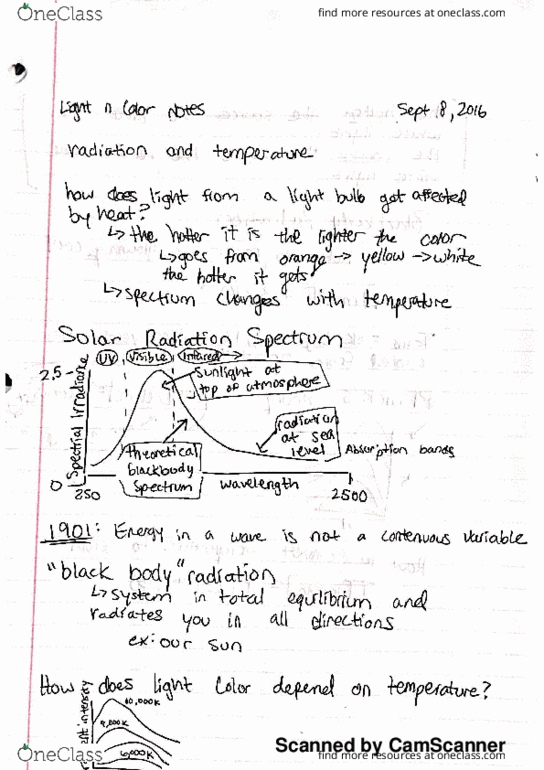 OneClass
find more resources at oneclass.com
Light n Color notes Sept 8, 2016
radiation and temperature
how does light from a light bulb get affected
by heat?
↳ the hotter it is the lighter the color
↳ goes from orange → yellow → white
the hotter it gets
↳ spectrum changes with temperature
Solar Radiation Spectrum
UV Visible Infared →
2.5
Spectrial Irradiance
Sunlight at
top of atmosphere
radiation
at sea
level
Absorption bands
theoretical
blackbody
Spectrum
wavelength
0
250
2500
1901: Energy in a wave is not a contenuous variable
"black body" radiation
↳ system in total equilibrium and
radiates you in all directions
ex: our sun
How does light color depend on temperature?
intensity
10,000K
6,000K
OneClass
Scanned by CamScanner
find more resources at oneclass.com